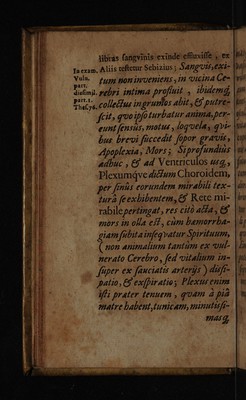 libras sangvinis exinde effluxisse, ex
Aliis testetur Sebizius; Sangvis, exi-
tum non inveniens, in vicina Ce-
rebri intima profluit, ibidemq;
collectus in grumos abit, & putre-
scit, qvo ipso turbatur anima, per-
eunt sensus, motus, loqvela, qvi-
bus brevi succedit sopor gravis,
Apoplexia, Mors; Si profundiùs
adhuc, & ad Ventriculos usq;
Plexumqve dictum Choroidem,
per sinus eorundem mirabili tex-
turâ se exhibentem, & Rete mi-
rabile pertingat, res citò acta, &
mors in olla est, cùm hæmorrha-
giam subita inseqvatur Spirituum,
(non animalium tantùm ex vul-
nerato Cerebro, sed vitalium in-
super ex sauciatis arterijs) dissi-
patio, & exspiratio; Plexus enim
isti præter tenuem, qvam à piâ
matre habent, tunicam, minutissi-
masq;
In exam.
Vuln.
part.
dissimil.
part. 1.
Thes. 76.